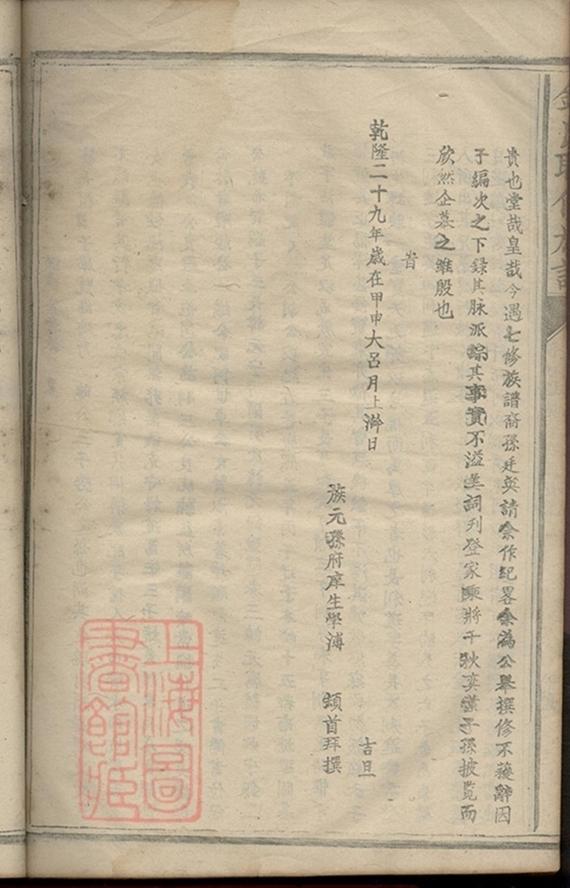 貴也堂哉皇哉今遇七修族譜裔孫廷英請余作紀畧余為公舉撰修不獲辭因
于編次之下録其脉派綜其事實不溢美詞列登家乘將千秋奕禩子孫披覧而
欣然企慕之維殷也
旹
乾隆二十九年歲在甲申大呂月上澣日
吉旦
族元孫府庠生學溥 頓首拜撰
上海圖
書館藏